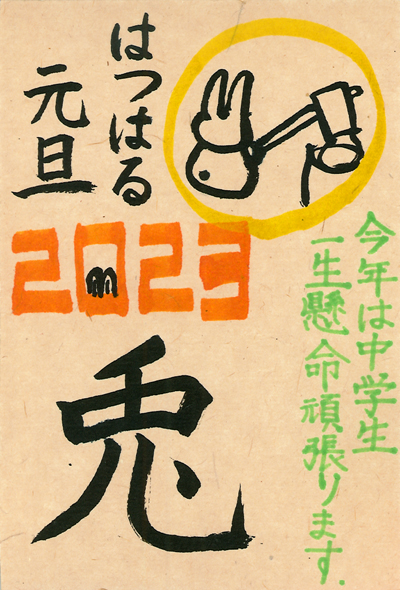 はつはる
元旦
2023
今年は中学生
一生懸命頑張ります.
兎